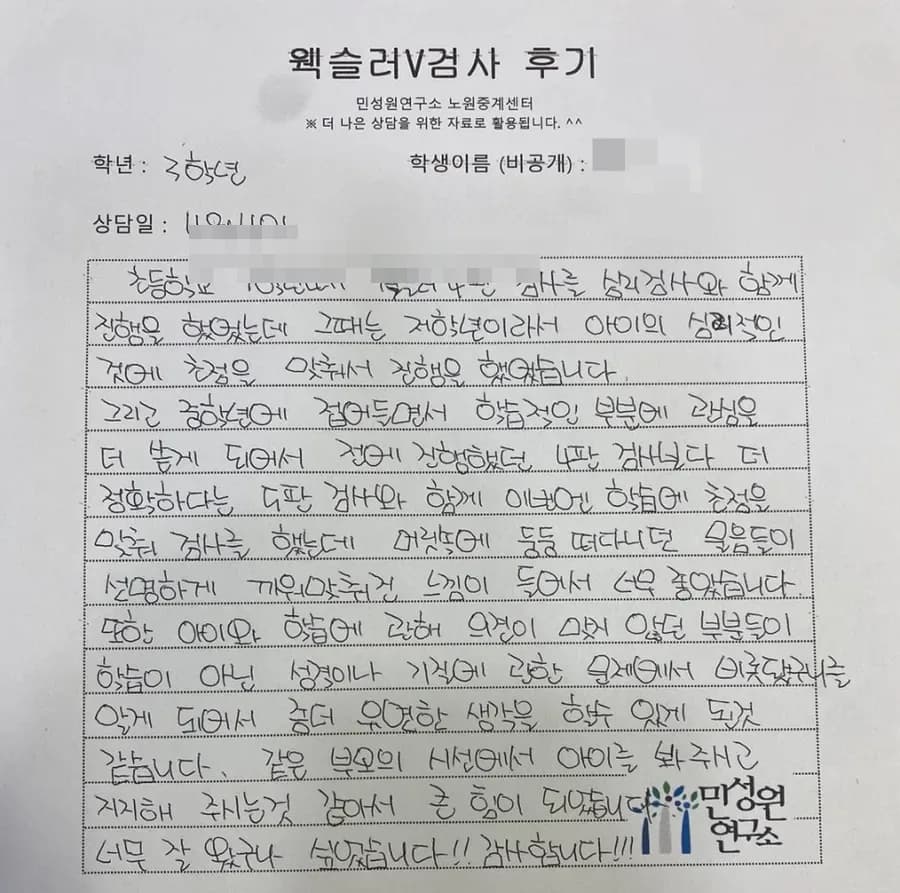 웩슬러V검사 후기
민성원연구소 노원중계센터
※ 더 나은 상담을 위한 자료로 활용됩니다. ^^
학년 : 3학년
학생이름 (비공개) :
상담일 :
초등학교 4판 검사를 심리검사와 함께
진행을 했었는데 그때는 저학년이라서 아이의 심리적인
것에 초점을 맞춰서 진행을 했었습니다.
그리고 중학년에 접어들면서 학습적인 부분에 관심을
더 쏟게 되어서 전에 진행했던 4판 검사보다 더
정확하다는 5판 검사와 함께 이번엔 학습에 초점을
맞춰 검사를 했는데 머릿속에 둥둥 떠다니던 물음들이
선명하게 끼워맞춰진 느낌이 들어서 너무 좋았습니다.
또한 아이와 학습에 관해 의견이 맞지 않던 부분들이
학습이 아닌 성격이나 기질에 관한 문제에서 비롯됐구나를
알게 되어서 좀더 유연한 생각을 할수 있게 된것
같습니다. 같은 부모의 시선에서 아이를 봐주시고
지지해 주시는것 같아서 큰 힘이 되었습니다
너무 잘 왔구나 싶었습니다!! 감사합니다!!!
민성원
연구소